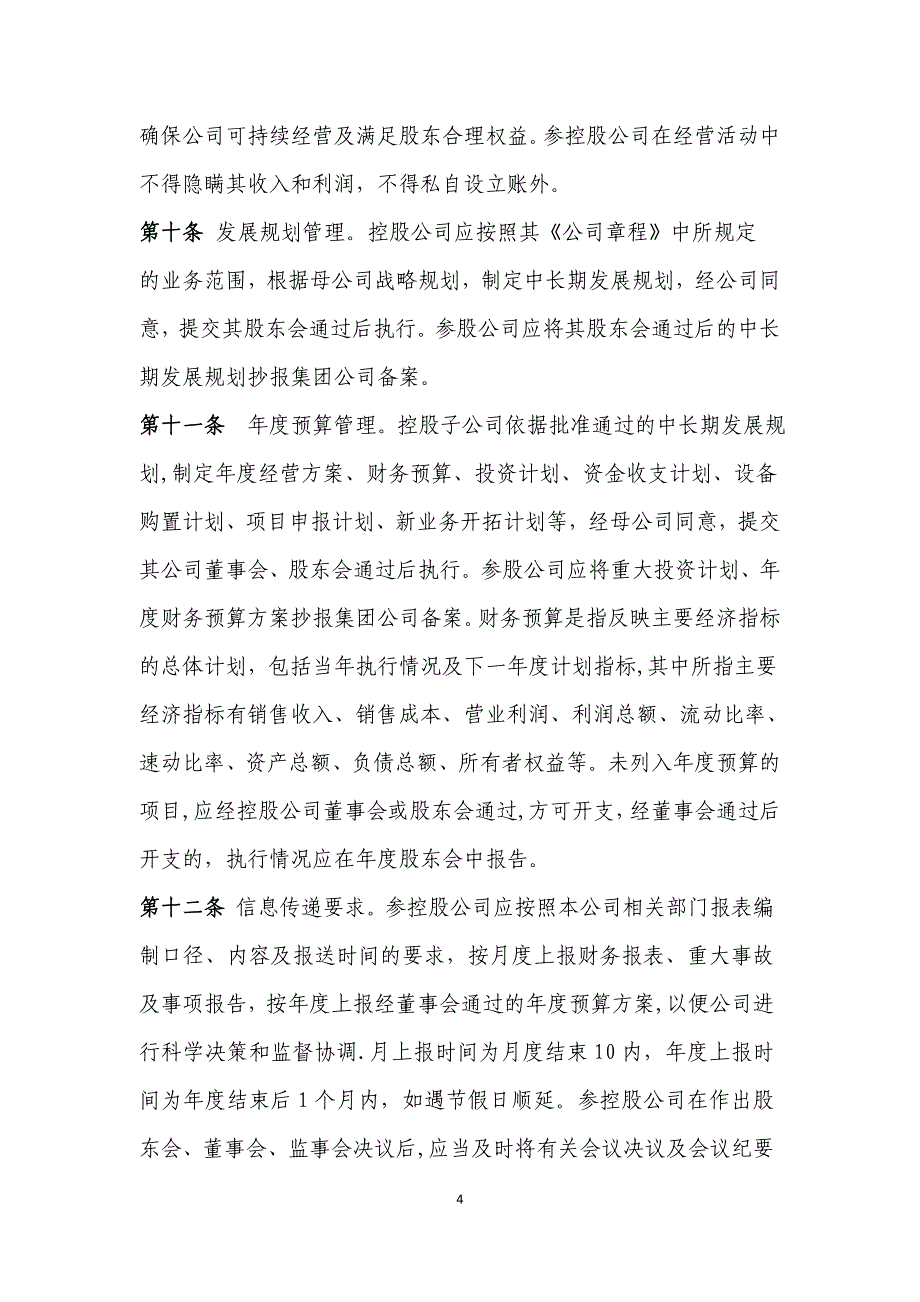 确保公司可持续经营及满足股东合理权益。参控股公司在经营活动中
不得隐瞒其收入和利润，不得私自设立账外。
第十条 发展规划管理。控股公司应按照其《公司章程》中所规定
的业务范围，根据母公司战略规划，制定中长期发展规划，经公司同
意，提交其股东会通过后执行。参股公司应将其股东会通过后的中长
期发展规划抄报集团公司备案。
第十一条 年度预算管理。控股子公司依据批准通过的中长期发展规
划,制定年度经营方案、财务预算、投资计划、资金收支计划、设备
购置计划、项目申报计划、新业务开拓计划等，经母公司同意，提交
其公司董事会、股东会通过后执行。参股公司应将重大投资计划、年
度财务预算方案抄报集团公司备案。财务预算是指反映主要经济指标
的总体计划，包括当年执行情况及下一年度计划指标,其中所指主要
经济指标有销售收入、销售成本、营业利润、利润总额、流动比率、
速动比率、资产总额、负债总额、所有者权益等。未列入年度预算的
项目,应经控股公司董事会或股东会通过,方可开支，经董事会通过后
开支的，执行情况应在年度股东会中报告。
第十二条 信息传递要求。参控股公司应按照本公司相关部门报表编
制口径、内容及报送时间的要求，按月度上报财务报表、重大事故
及事项报告，按年度上报经董事会通过的年度预算方案,以便公司进
行科学决策和监督协调.月上报时间为月度结束 10 内，年度上报时
间为年度结束后 1 个月内，如遇节假日顺延。参控股公司在作出股
东会、董事会、监事会决议后,应当及时将有关会议决议及会议纪要
4